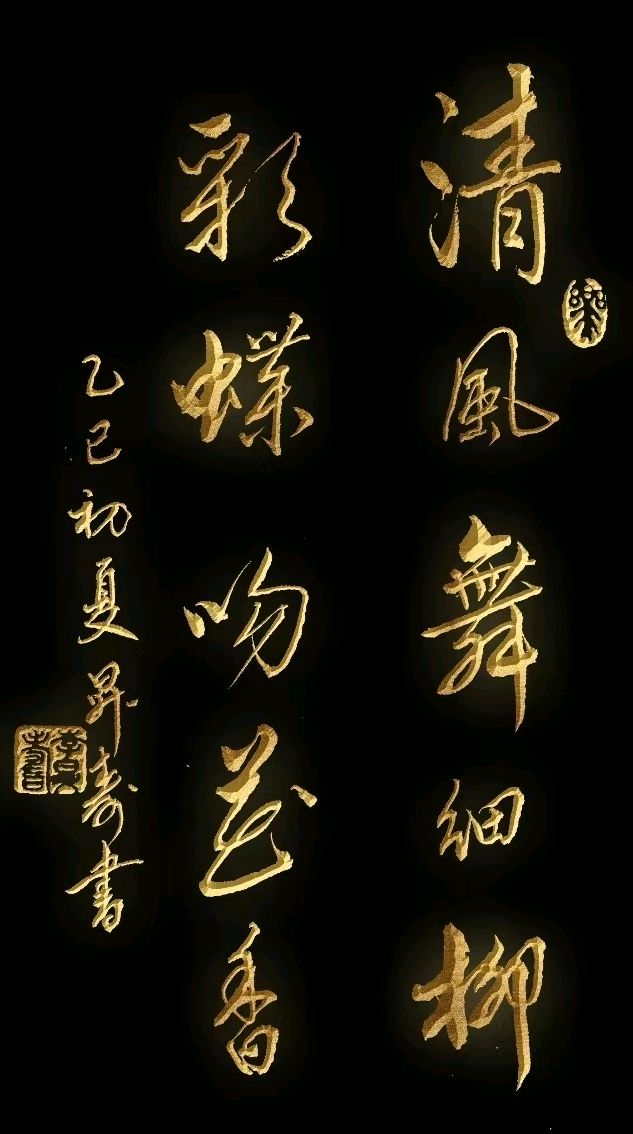 清風舞細柳
彩蝶吻花香
乙巳初夏昇壽書